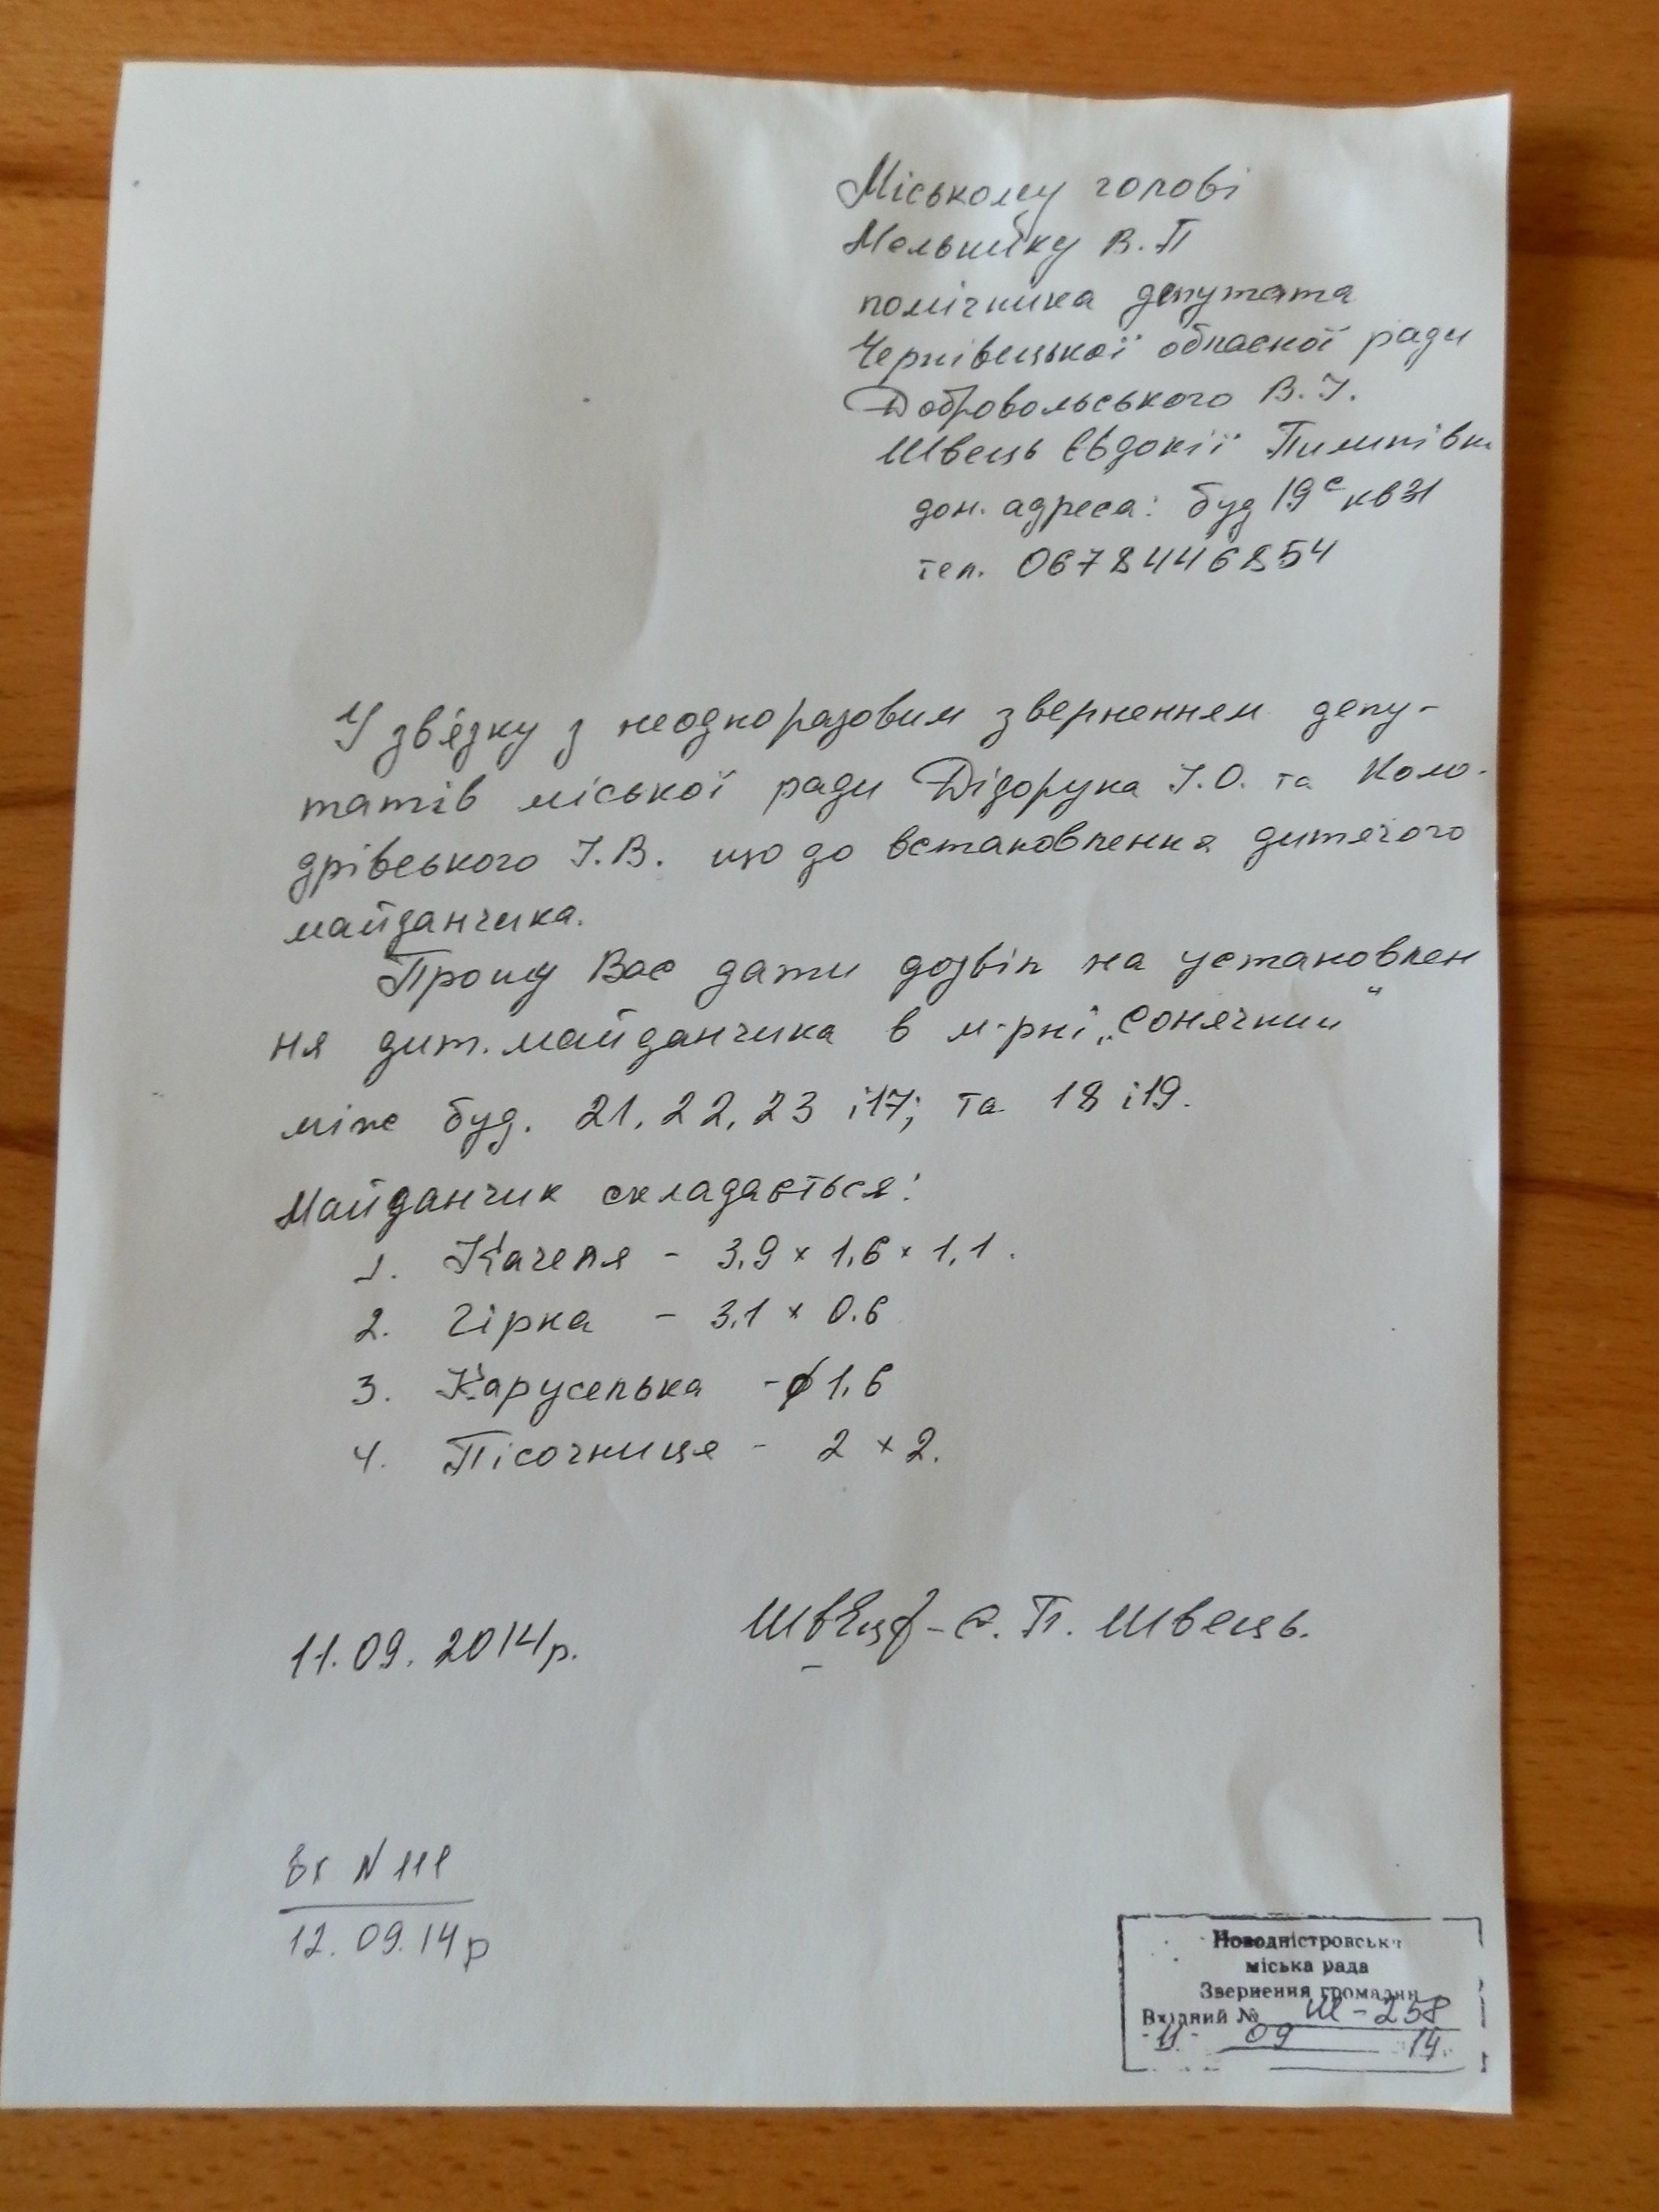 Міському голові
Мельнику В. П
помічника депутата
Чернівецької обласної ради
Добровольського В. І.
Швець Євдокії Пилипівни
дом. адреса: буд 19с кв 31
тел. 0678446854
У зв'язку з неодноразовим зверненнем депу-
татів міської ради Дідорука І. О. та Коло-
дрівського І. В. що до встановлення дитячого
майданчика.
Прошу Вас дати дозвіл на установлен
ня дит. майданчика в м-рні „Сонячний"
між буд. 21, 22, 23 і 17; та 18 і 19.
Майданчик складається:
1. Качеля - 3,9 × 1,6 × 1,1.
2. Гірка - 3,1 × 0.6
3. Каруселька - ϕ 1,6
4. Пісочниця - 2 × 2.
11.09.2014р. Є. П. Швець.
Вх N 111
12.09.14р
Новодністровська
міська рада
Звернення громадян
Вхідний № Ш-258
11 09 14